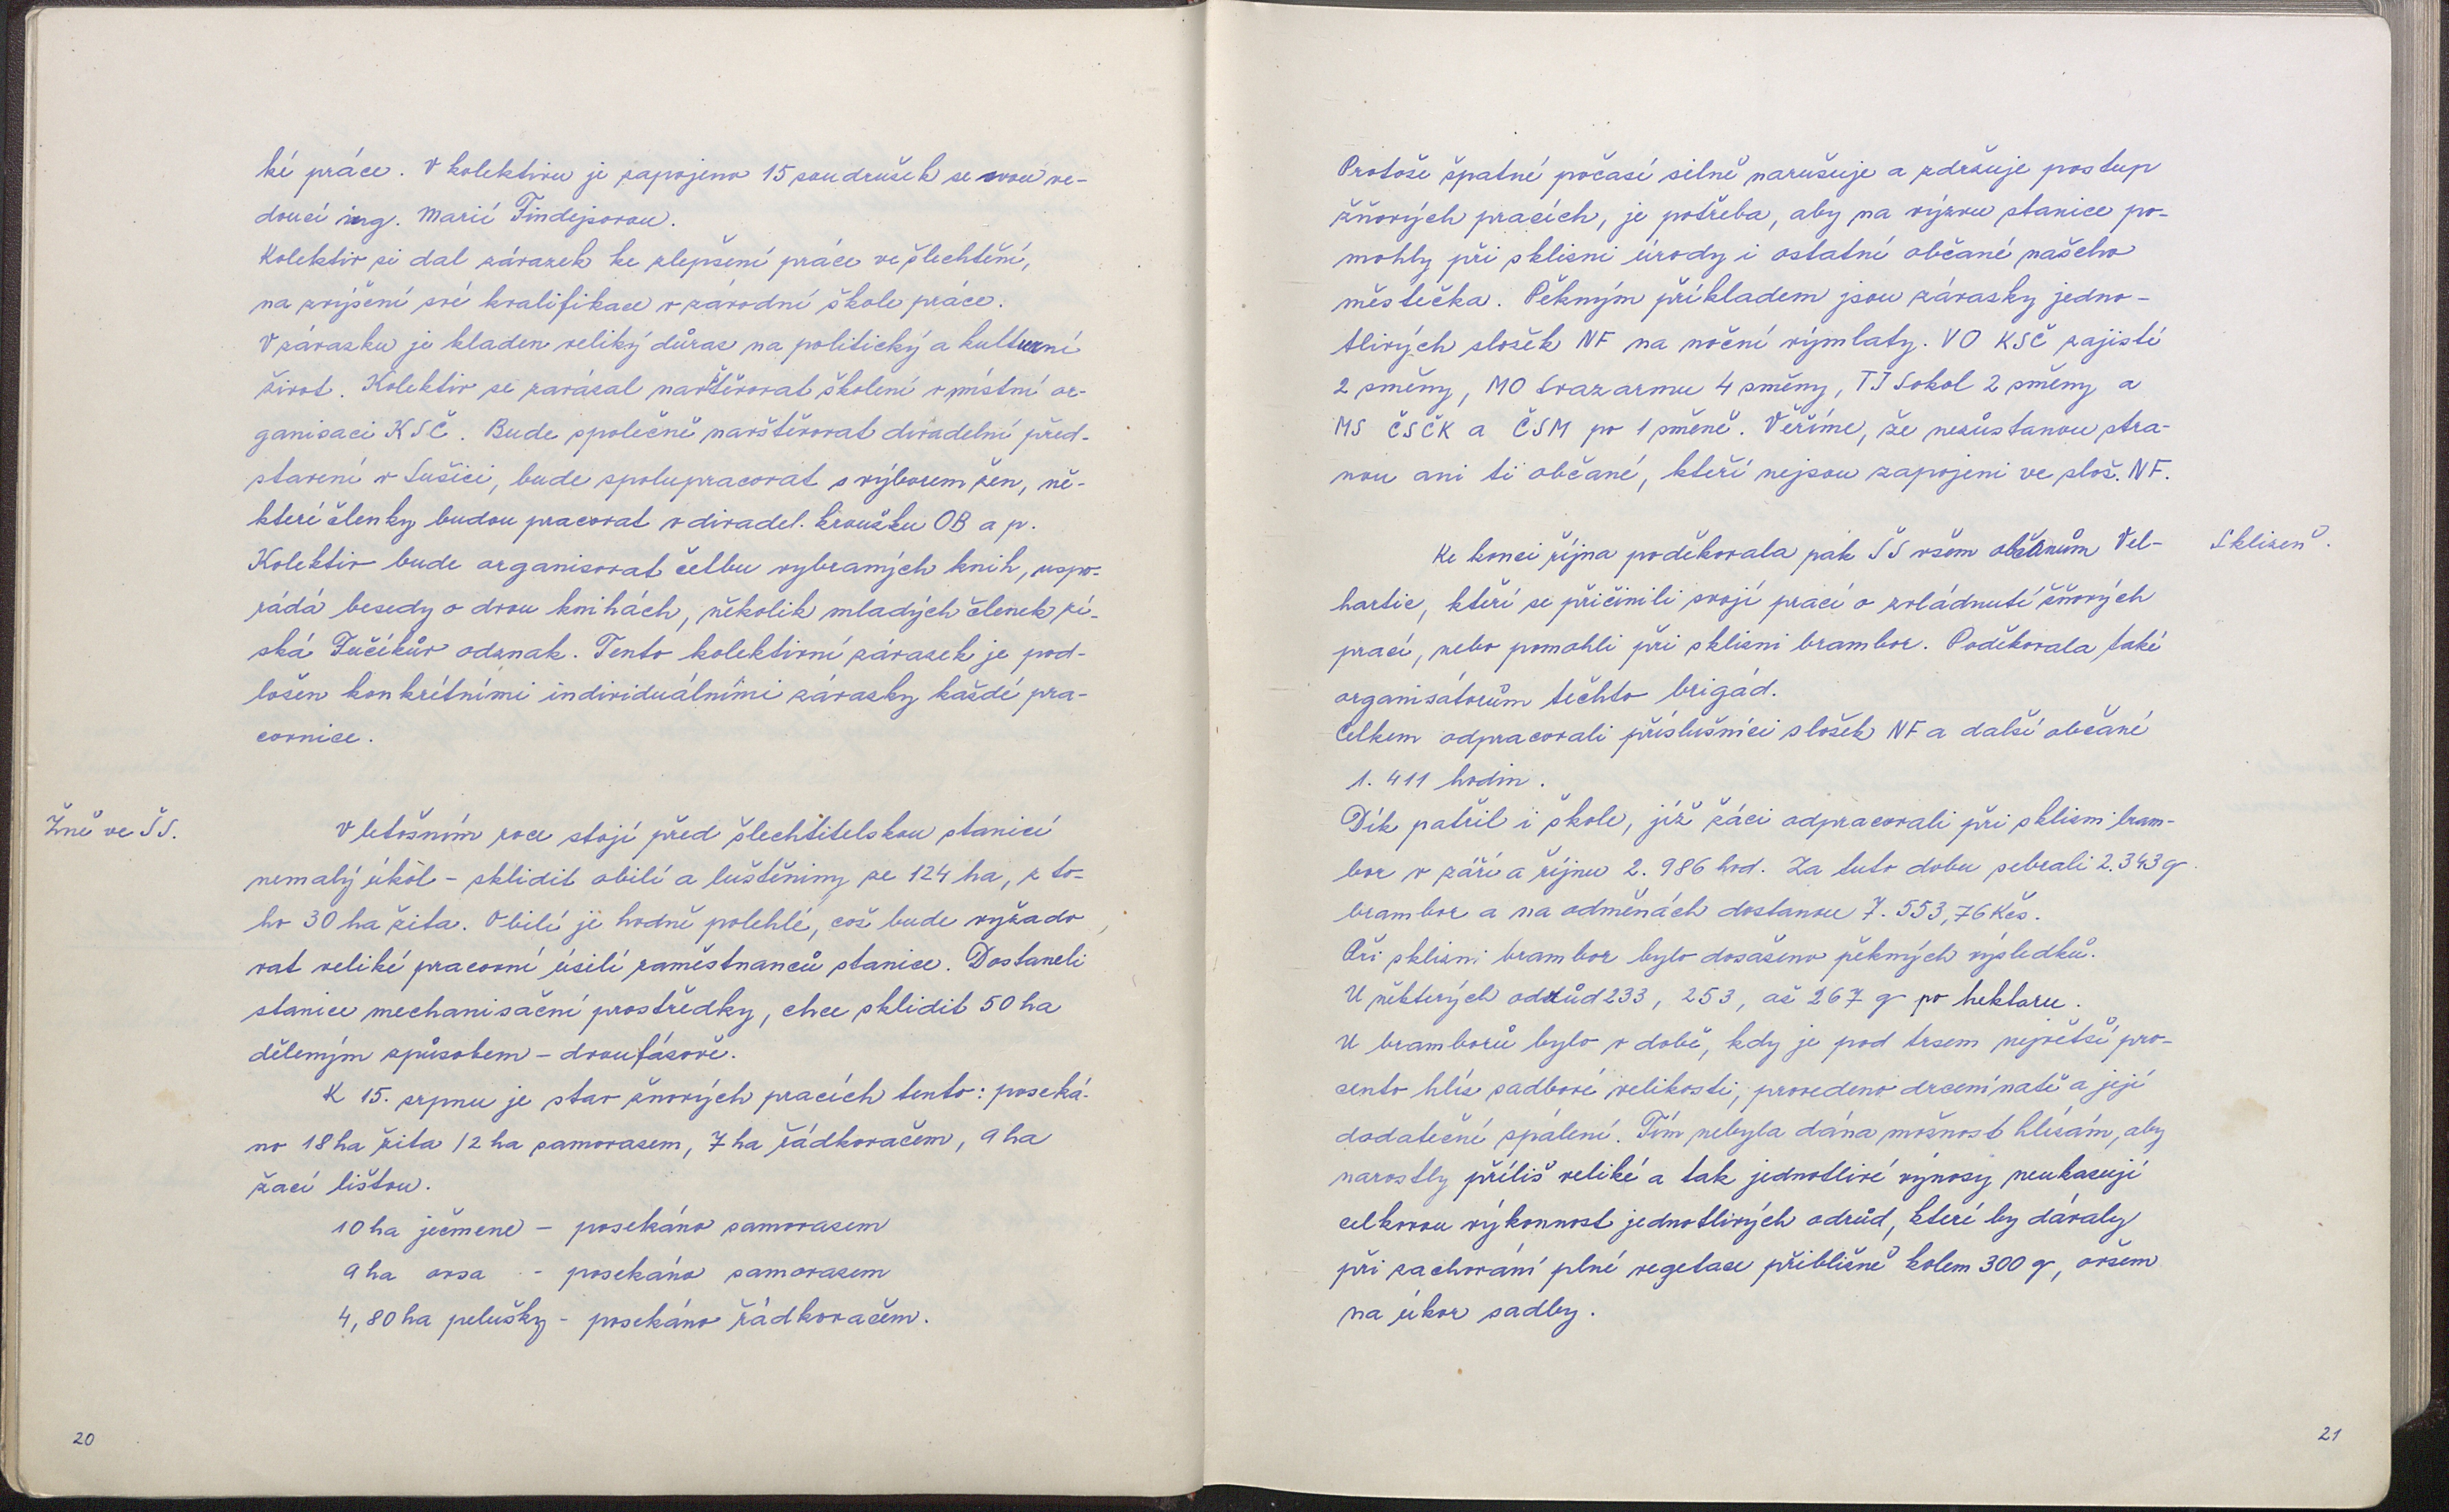 ké práce. V kolektivu je zapojeno 15 soudružek se svou ve-
doucí ing. Marií Findejsovou.
Kolektiv si dal závazek ke zlepšení práce ve šlechtění,
na zvýšení své kvalifikace v závodní škole práce.
V závazku je kladen veliký důraz na politický a kulturní
život. Kolektiv se zavázal navštěvovat školení v místní or-
ganisaci KSČ. Bude společně navštěvovat divadelní před-
stavení v Sušici, bude spolupracovat s výborem žen, ně-
které členky budou pracovat v divadel. kroužku OB a p.
Kolektiv bude organisovat četbu vybraných knih, uspo-
řádá besedy o dvou knihách, několik mladých členek zí-
ská Fučíkův odznak. Tento kolektivní závazek je pod-
ložen konkrétními individuálními závazky každé pra-
covnice.
Žně ve ŠS.
V letošním roce stojí před šlechtitelskou stanicí
nemalý úkol - sklidit obilí a luštěniny ze 124 ha, z to-
ho 30 ha žita. Obilí je hodně polehlé, což bude vyžado
vat veliké pracovní úsilí zaměstnanců stanice. Dostaneli
stanice mechanisační prostředky, chce sklidit 50 ha
děleným způsobem - dvoufázově.
K 15. srpnu je stav žňových pracích tento: poseká-
no 18 ha žita /2 ha samovazem, 7 ha řádkovačem, 9 ha
žací lištou.
10 ha ječmene - posekáno samovazem
9 ha ovsa - posekáno samovazem
4,80 ha pelušky - posekáno řádkovačem.
20
Protože špatné počasí silně narušuje a zdržuje postup
žňových pracích, je potřeba, aby na výzvu stanice po-
mohly při sklizni úrody i ostatní občané našeho
městečka. Pěkným příkladem jsou závazky jedno-
tlivých složek NF na noční výmlaty. VO KSČ zajistí
2 směny, MO Svazarmu 4 směny, TJ Sokol 2 směny a
MS ČSČK a ČSM po 1 směně. Věříme, že nezůstanou stra-
nou ani ti občané, kteří nejsou zapojeni ve slož. NF.
Ke konci října poděkovala pak ŠS všem občanům Vel-
Sklizeň.
hartic, kteří se přičinili svojí prací o zvládnutí žňových
prací, nebo pomohli při sklizni brambor. Poděkovala také
organisátorům těchto brigád.
Celkem odpracovali příslušníci složek NF a další občané
1. 411 hodin.
Dík patřil i škole, jíž žáci odpracovali při sklizni bram-
bor v září a říjnu 2. 986 hod. Za tuto dobu sebrali 2.343 q
brambor a na odměnách dostanou 7. 553,76 Kčs.
Při sklizni brambor bylo dosaženo pěkných výsledků.
U některých odrůd 233, 253, až 267 q po hektaru.
U bramborů bylo v době, kdy je pod trsem největší pro-
cento hlíz sadbové velikosti, provedeno drcení natě a její
dodatečné spálení. Tím nebyla dána možnost hlízám, aby
narostly příliš veliké a tak jednotlivé výnosy neukazují
celkovou výkonnost jednotlivých odrůd, které by dávaly
při zachování plné vegetace přibližně kolem 300 q, ovšem
na úkor sadby.
21